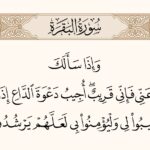 سُورَةُ البَقَرَةِ
وَإِذَا سَأَلَكَ
عَنِّي فَإِنِّي قَرِيبٌ ۖ أُجِيبُ دَعْوَةَ الدَّاعِ إِذَا
يبُوا لِي وَلْيُؤْمِنُوا بِي لَعَلَّهُمْ يَرْشُدُو